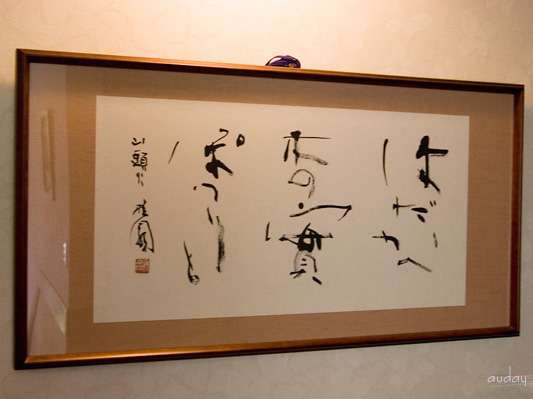 はだか
木の實
ぽつりと
山頭火
auday